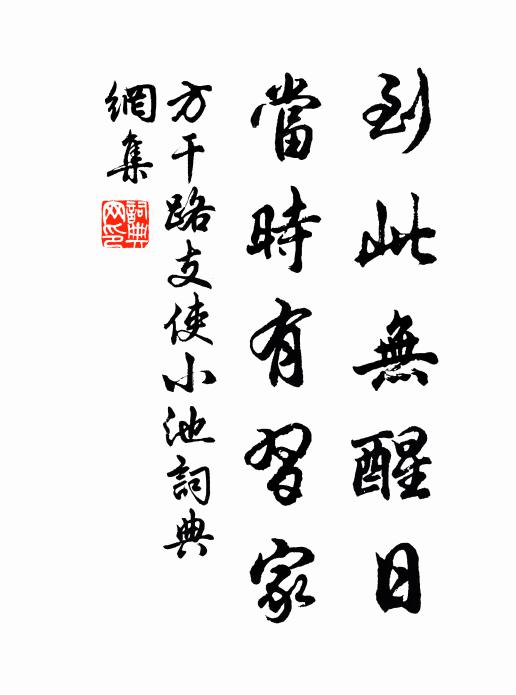 到此無醒日
當時有習家
方干路支使小池詞典
網集
詞典
网印